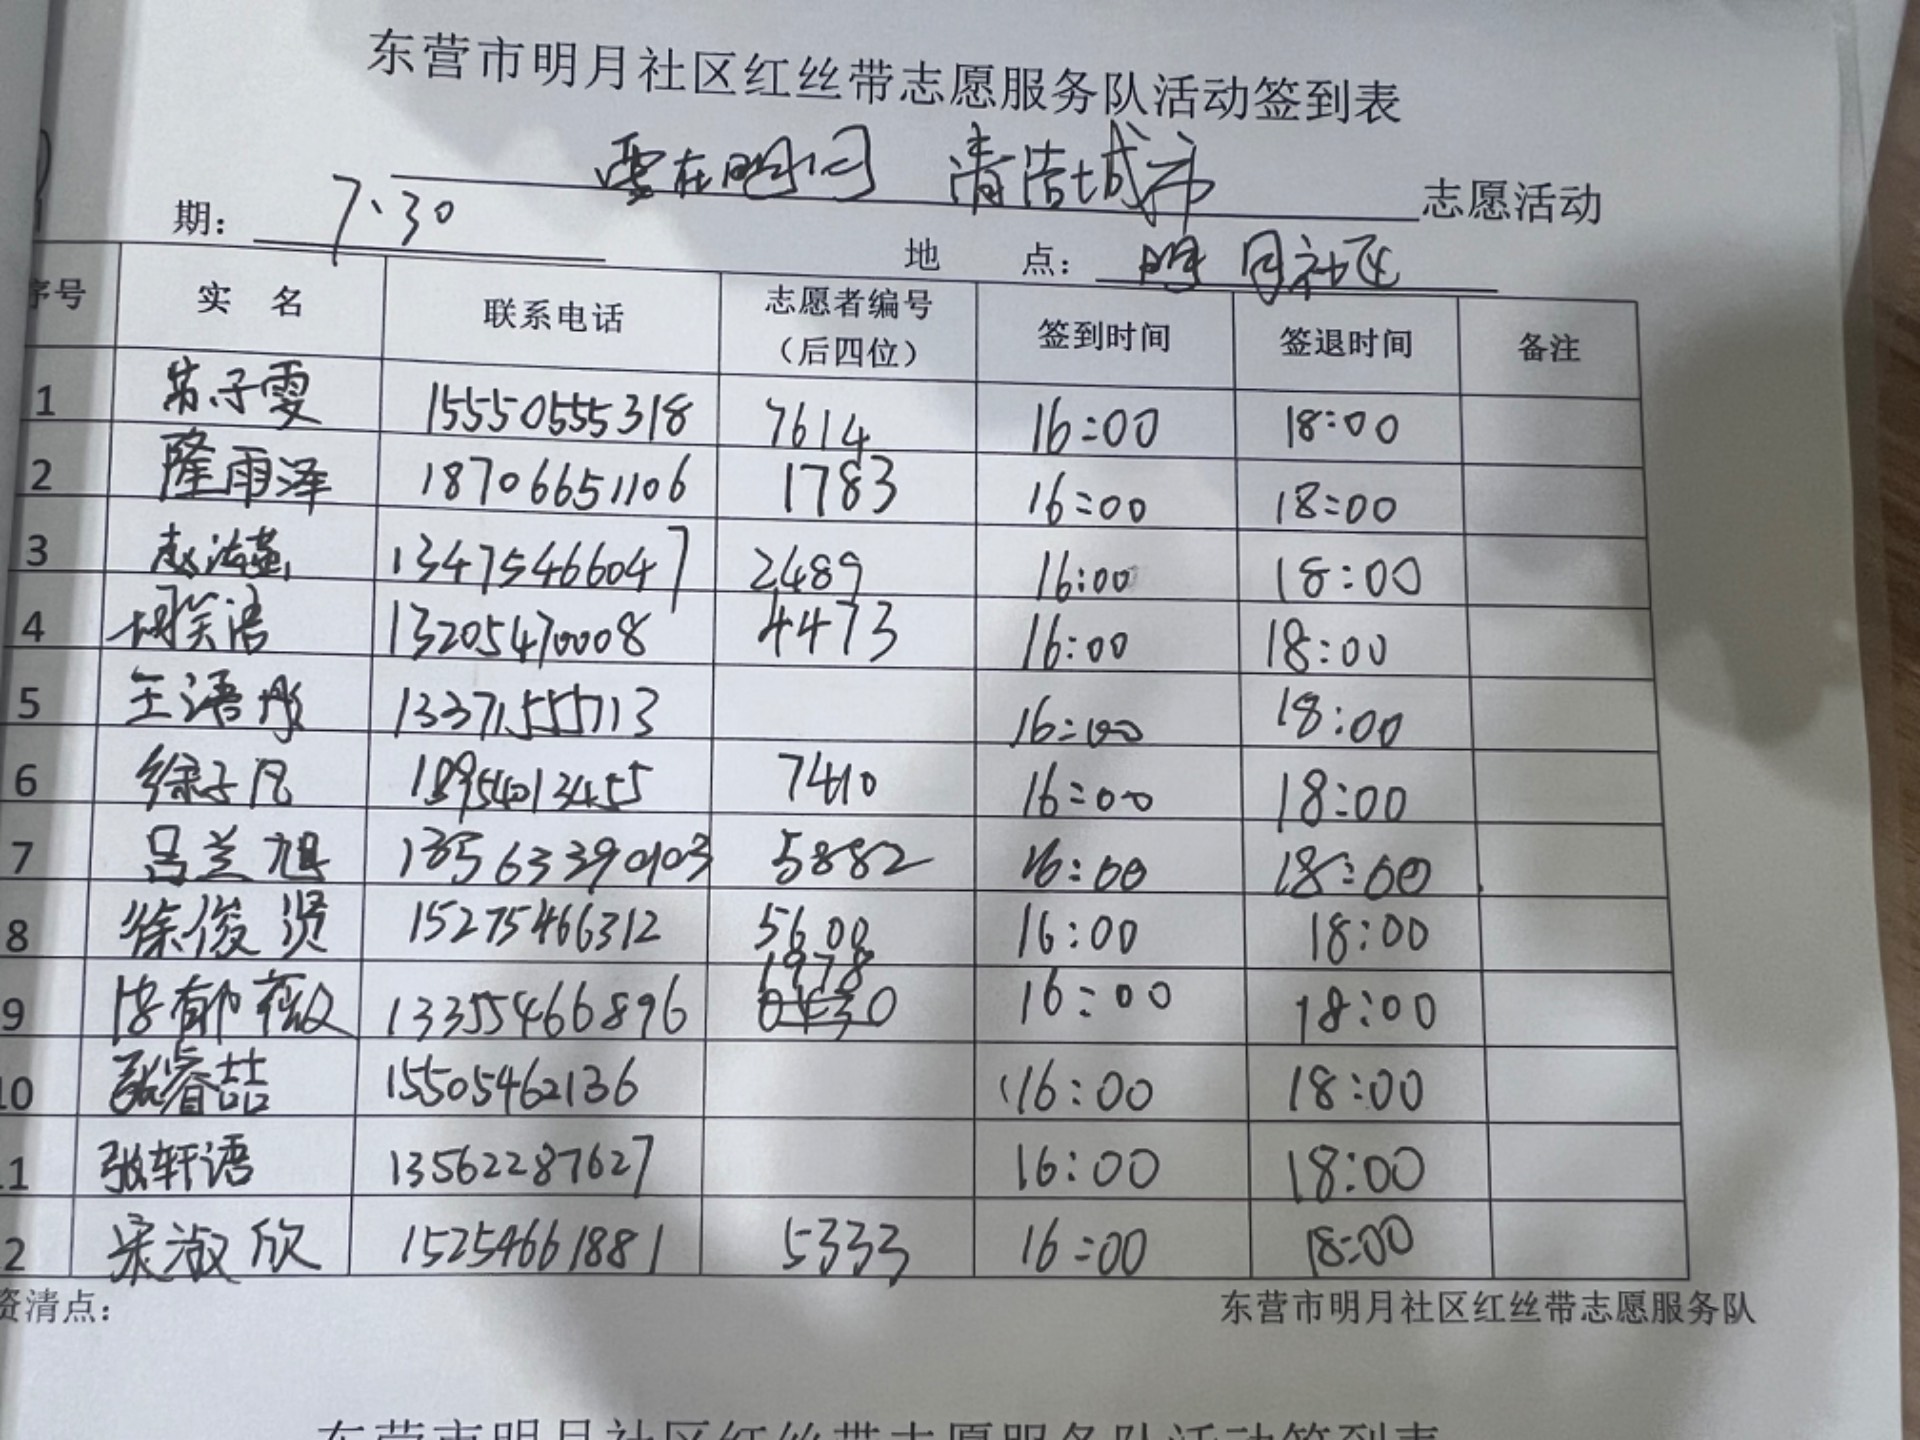 东营市明月社区红丝带志愿服务队活动签到表
清洁城市 志愿活动
期： 7、30 地 点： 明月社区
序号 实 名 联系电话 志愿者编号（后四位） 签到时间 签退时间 备注
1 苏子雯 15550555318 7614 16:00 18:00
2 隆雨泽 18706651106 1783 16:00 18:00
3 赵 13475466047 2489 16:00 18:00
4 胡笑语 13205470008 4473 16:00 18:00
5 王语彤 13371555713 16:00 18:00
6 徐子凡 18954013455 7410 16:00 18:00
7 吕兰旭 13563390103 5882 16:00 18:00
8 徐俊贤 15275466312 5600 16:00 18:00
9 郁薇 13355466896 1978 16:00 18:00
10 张睿喆 15505462136 16:00 18:00
11 张轩语 13562287627 16:00 18:00
2 宋淑欣 15254661881 5333 16:00 18:00
资清点： 东营市明月社区红丝带志愿服务队
东营市明月社区红丝带志愿服务队活动签到表